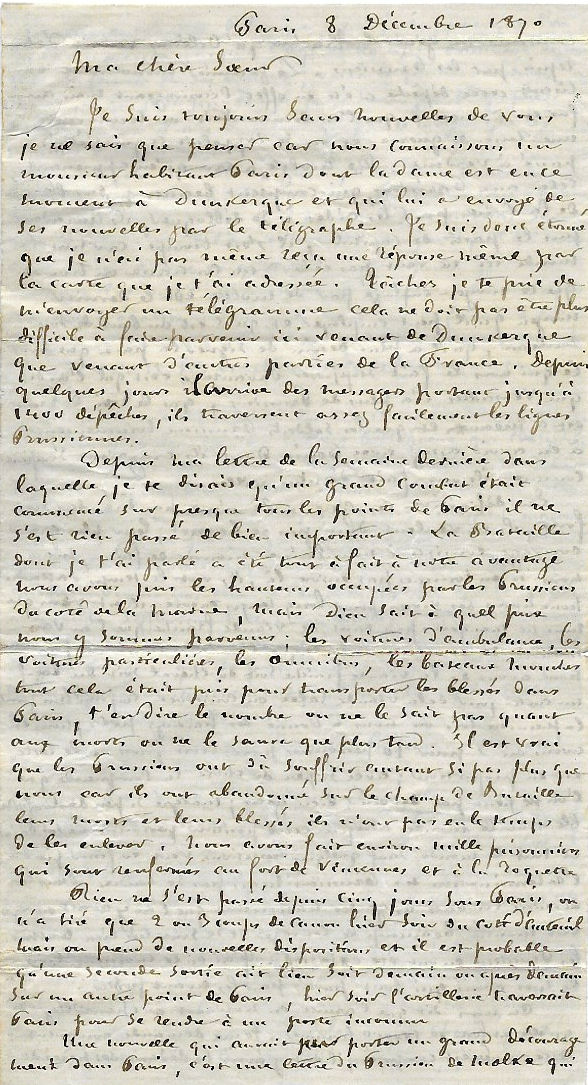 Paris 8 Décembre 1870
Ma chère Sœur
Je suis toujours sans nouvelles de vous
je ne sais que penser car nous connaissons un
monsieur habitant Paris dont la dame est en ce
moment à Dunkerque et qui lui a envoyé de
ses nouvelles par le télégraphe. Je suis donc étonné
que je n'ai pas même reçu une réponse même par
la carte que je t'ai adressée. Tâchez je te prie de
m'envoyer un télégramme cela ne doit pas être plus
difficile à faire parvenir ici venant de Dunkerque
que venant d'autres parties de la France. Depuis
quelques jours il arrive des messagers portant jusqu'à
1400 dépêches, ils traversent assez facilement les lignes
Prussiennes.
Depuis ma lettre de la semaine dernière dans
laquelle je te disais qu'un grand combat était
commencé sur presque tous les points de Paris il ne
s'est rien passé de bien important. La Bataille
dont je t'ai parlé a été tout à fait à notre avantage
nous avons pris les hauteurs occupées par les Prussiens
du coté de la Marne, mais Dieu sait à quel prix
nous y sommes parvenus; les voitures d'ambulance, les
voitures particulières, les omnibus, les bateaux mouches
tout cela était pris pour transporter les blessés dans
Paris, t'en dire le nombre on ne le sait pas quant
aux morts on ne le saura que plus tard. Il est vrai
que les Prussiens ont dû souffrir autant si pas plus que
nous car ils ont abandonné sur le champ de Bataille
leurs morts et leurs blessés ils n'ont pas eu le temps
de les enlever. Nous avons fait environ mille prisonniers
qui sont renfermés au fort de Vincennes et à la Roquette
Rien ne s'est passé depuis cinq jours sous Paris, on
n'a tiré que 2 ou 3 coups de canon hier soir du coté d'Auteuil
mais on prend de nouvelles dispositions et il est probable
qu'une seconde sortie ait lieu soit demain ou après demain
sur un autre point de Paris, hier soir l'artillerie traversait
Paris pour se rendre à un poste inconnu
Une nouvelle qui aurait pu porter un grand décourage
ment dans Paris, c'est une lettre du Prussien de Moltke qui